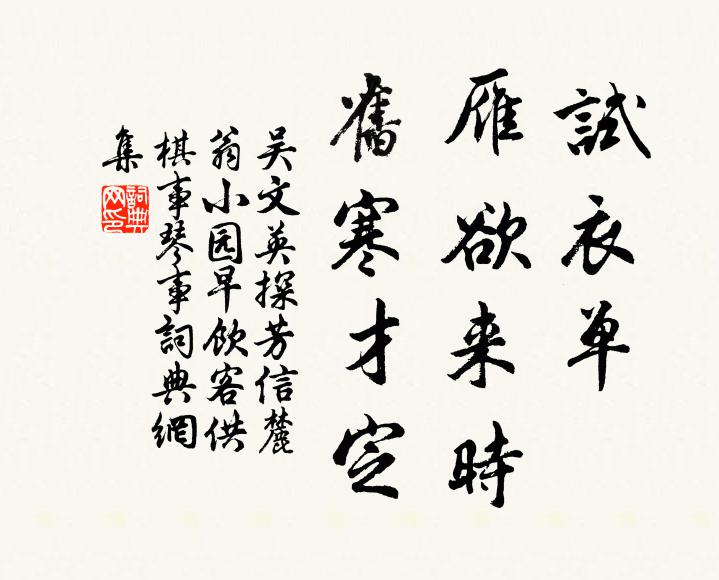 試衣单
雁欲来時
舊寒才定
吴文英探芳信麓
翁小园早飲客供
棋事琴事詞典網
集
詞典网印